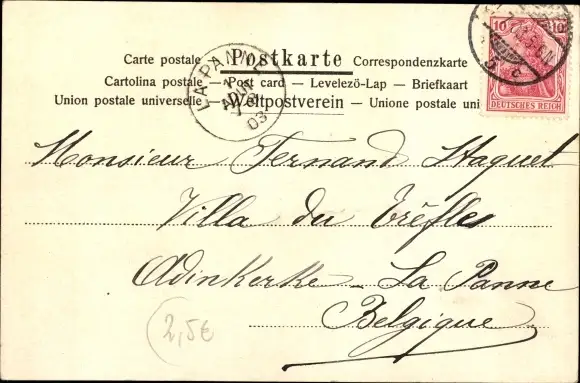 Carte postale — Postkarte — Correspondenzkarte
Cartolina postale — Post card — Levelezö-Lap — Briefkaart
Union postale universelle — Weltpostverein — Unione postale uni
LA PANNE
AOUT
03
10 10
DEUTSCHES REICH
Monsieur Fernand Haquet
Villa du Trêfles
Adinkerke - La Panne
Belgique
2,5€